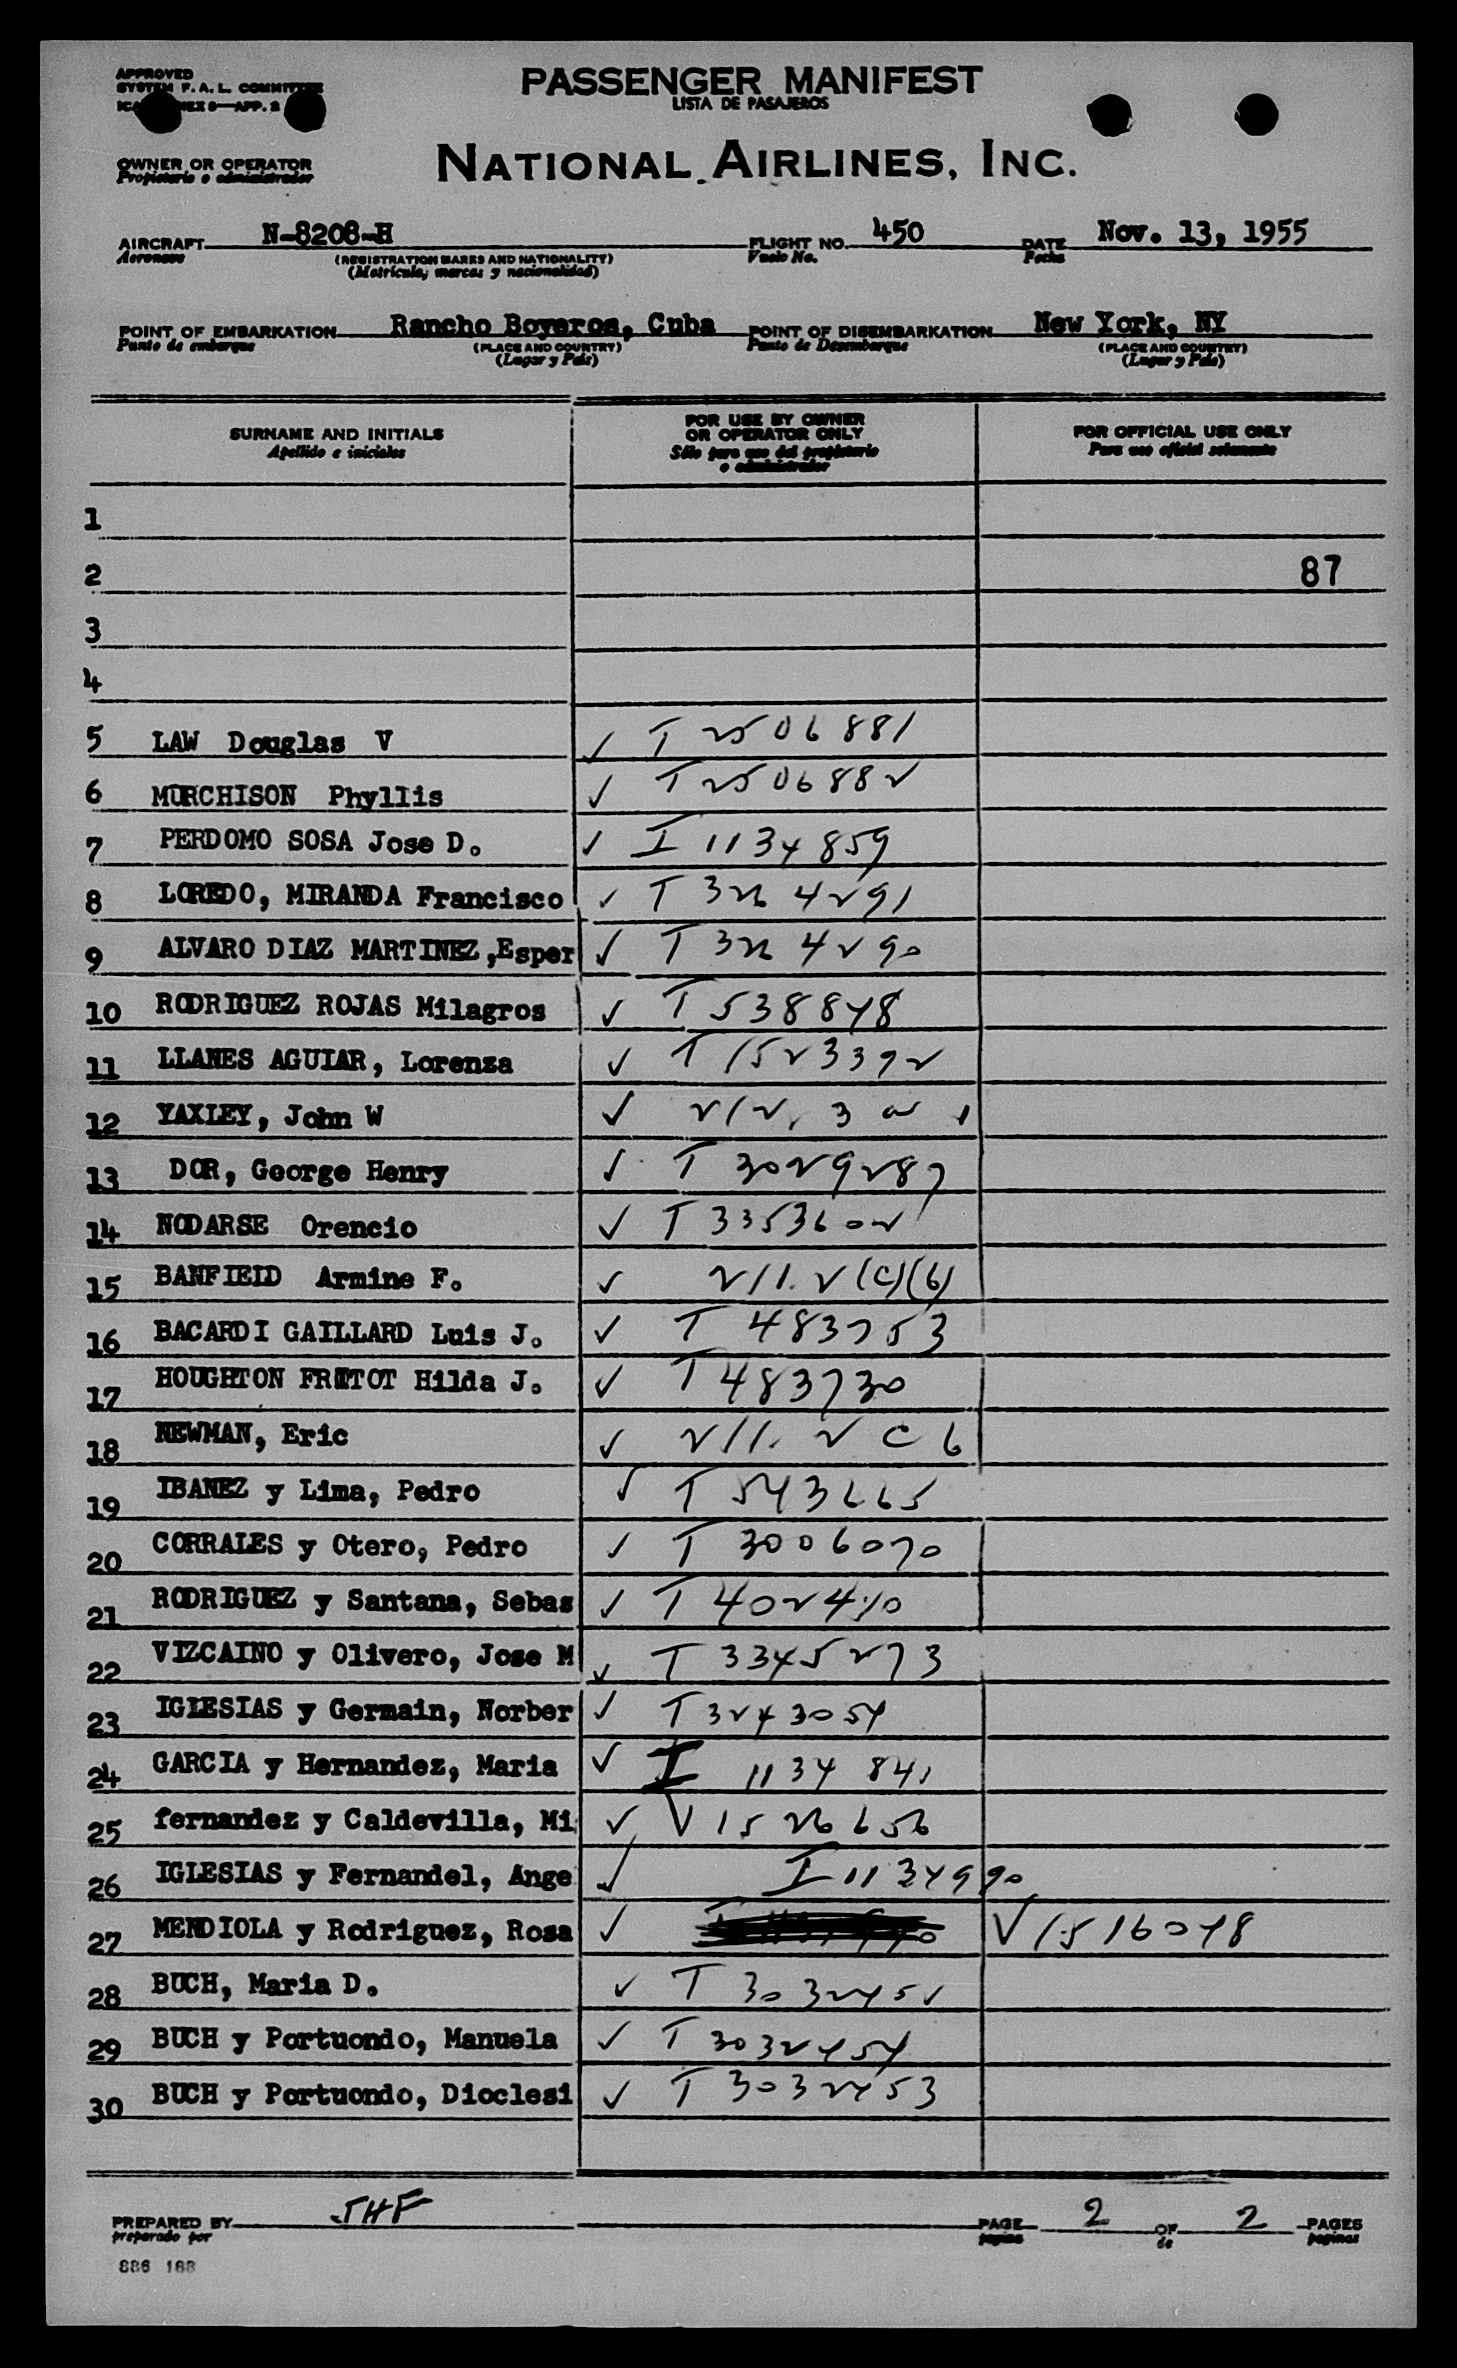 APPROVED
SYSTEM F. A. L. COMMITTEE
PASSENGER MANIFEST
LISTA DE PASAJEROS
OWNER OR OPERATOR
Propietario o administrador
NATIONAL AIRLINES, INC.
AIRCRAFT N-8208-H FLIGHT NO. 450 DATE Nov. 13, 1955
Aeronave (REGISTRATION MARKS AND NATIONALITY) Vuelo No. Fecha
(Matrícula, marcas y nacionalidad)
POINT OF EMBARKATION Rancho Boyeros, Cuba POINT OF DISEMBARKATION New York, NY
Punto de embarque (PLACE AND COUNTRY) Punto de Desembarque (PLACE AND COUNTRY)
(Lugar y País) (Lugar y País)
SURNAME AND INITIALS FOR USE BY OWNER OR OPERATOR ONLY FOR OFFICIAL USE ONLY
Apellido e iniciales Sólo para uso del propietario o administrador Para uso oficial solamente
1
2 87
3
4
5 LAW Douglas V ✓ T 2506881
6 MURCHISON Phyllis ✓ T 2506882
7 PERDOMO SOSA Jose D. ✓ I 1134859
8 LOREDO, MIRANDA Francisco ✓ T 3264291
9 ALVARO DIAZ MARTINEZ, Esper ✓ T 3264290
10 RODRIGUEZ ROJAS Milagros ✓ T 538848
11 LLANES AGUIAR, Lorenza ✓ T 1523392
12 YAXLEY, John W ✓ 212.3
13 DOR, George Henry ✓ T 3029287
14 NODARSE Orencio ✓ T 3353602
15 BANFIELD Armine F. ✓ 211.2(C)(6)
16 BACARDI GAILLARD Luis J. ✓ T 483753
17 HOUGHTON Hilda J. ✓ T 483730
18 NEWMAN, Eric ✓ 211.2 C 6
19 IBANEZ y Lima, Pedro ✓ T 543665
20 CORRALES y Otero, Pedro ✓ T 3006070
21 RODRIGUEZ y Santana, Sebas ✓ T 402410
22 VIZCAINO y Olivero, Jose M ✓ T 3345273
23 IGLESIAS y Germain, Norber ✓ T 3243054
24 GARCIA y Hernandez, Maria ✓ I 1134 841
25 fernandez y Caldevilla, Mi ✓ V 1526656
26 IGLESIAS y Fernandel, Ange ✓ I 1134990
27 MENDIOLA y Rodriguez, Rosa ✓ V 1516048
28 BUCH, Maria D. ✓ T 3032452
29 BUCH y Portuondo, Manuela ✓ T 3032454
30 BUCH y Portuondo, Dioclesi ✓ T 3032453
PREPARED BY JHF PAGE 2 OF 2 PAGES
preparado por pagina de paginas
886 188